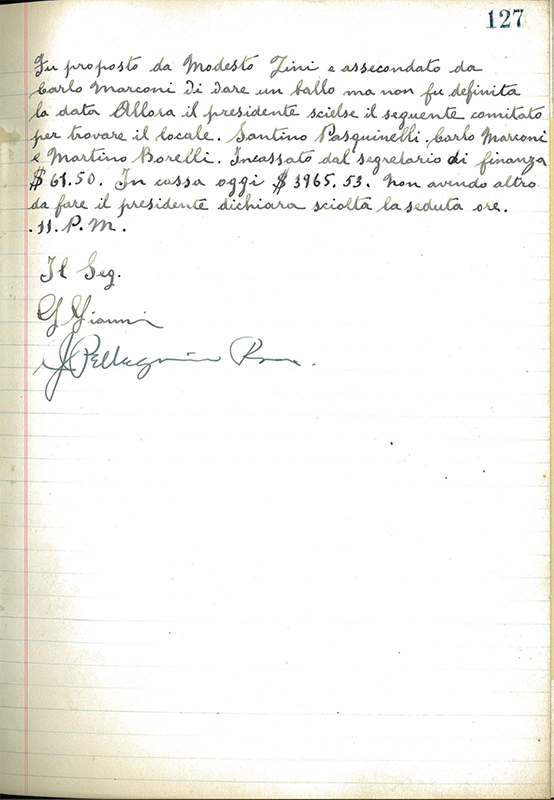 127
Fu proposto da Modesto Zini e assecondato da
Carlo Marconi di dare un ballo ma non fu definita
la data Allora il presidente scielse il seguente comitato
per trovare il locale. Santino Pasquinelli. Carlo Marconi
e Martino Borelli. Incassato dal segretario di finanza
$ 61.50. In cassa oggi $ 3965.53. Non avendo altro
da fare il presidente dichiara sciolta la seduta ore.
.11. P. M.
Il Seg.
G Gianni
J Pellegrini